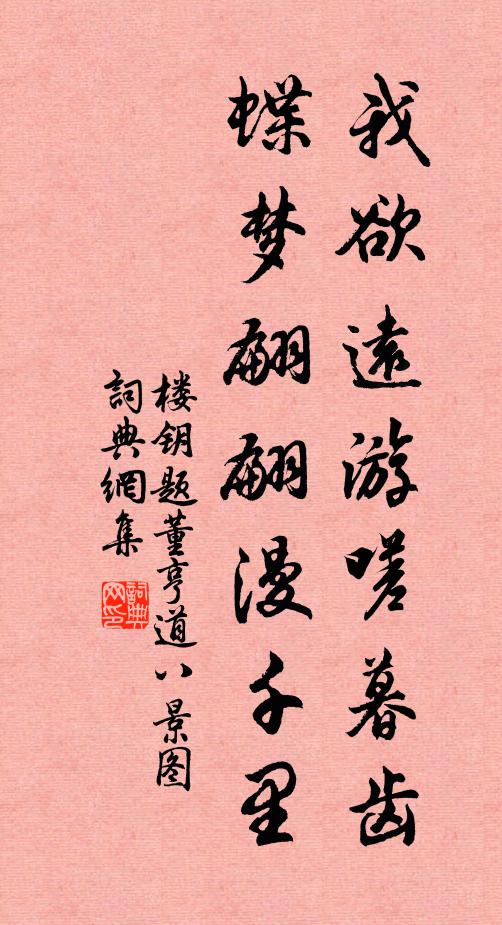 我欲遠游嗟暮齿
蝶梦翩翩漫千里
楼钥题董亨道八景图
詞典網集
詞典网印